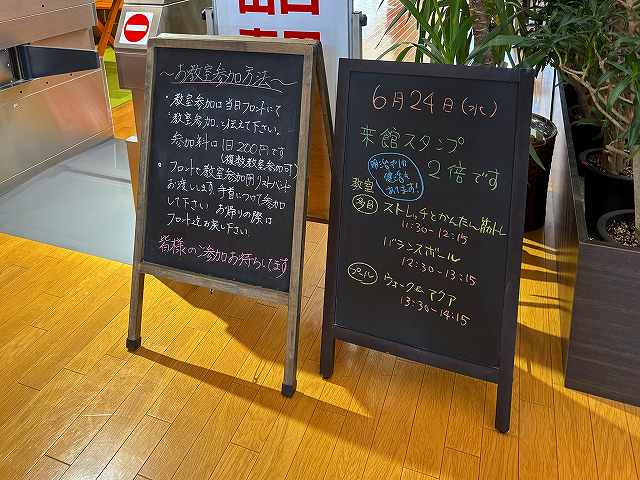 ~お教室参加方法~
・教室参加は当日フロントにて
「教室参加」と伝えて下さい。
参加料は1日200円です
(複数教室参加可)
・フロントで教室参加用リストバンド
お渡しします。手首につけて参加
して下さい。お帰りの際は
フロントにお戻し下さい。
皆様のご参加お待ちしてます
6月24日(火)
来館スタンプ
2倍です
教室
多目 ストレッチとかんたん筋トレ
11:30-12:15
バランスボール
12:30-13:15
プール ウォーク&アクア
13:30-14:15